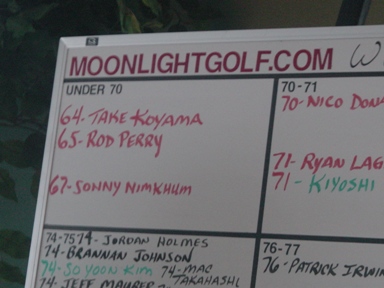 MOONLIGHTGOLF.COM
UNDER 70
64- TAKE KOYAMA
65- ROD PERRY
67- SONNY NIMKHUM
70-71
70- NICO
71- RYAN
71- KIYOSHI
74-75 74- JORDAN HOLMES
74- BRANNAN JOHNSON
74- SO YOON KIM 74- MAC TAKAHASHI
74- JEFF MAURER
76-77
76- PATRICK IRWIN